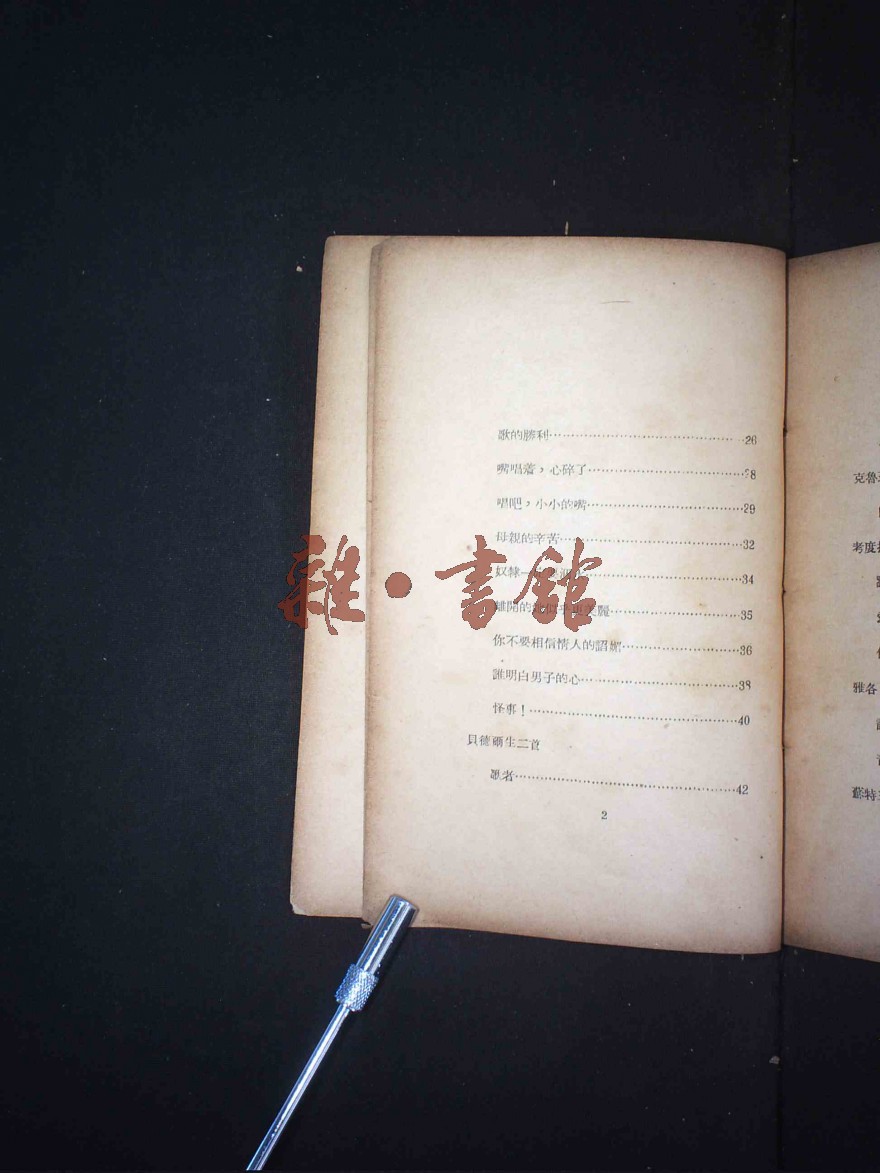 歌的勝利……26
嘴唱着，心碎了……28
唱吧，小小的嘴……29
母親的辛苦……32
奴隸一……34
離開的……似乎更美麗……35
你不要相信情人的諂媚……36
誰明白男子的心……38
怪事！……40
貝德爾生二首
歌者……42
2
雜·書館
克魯
考度
雅各
蘇特